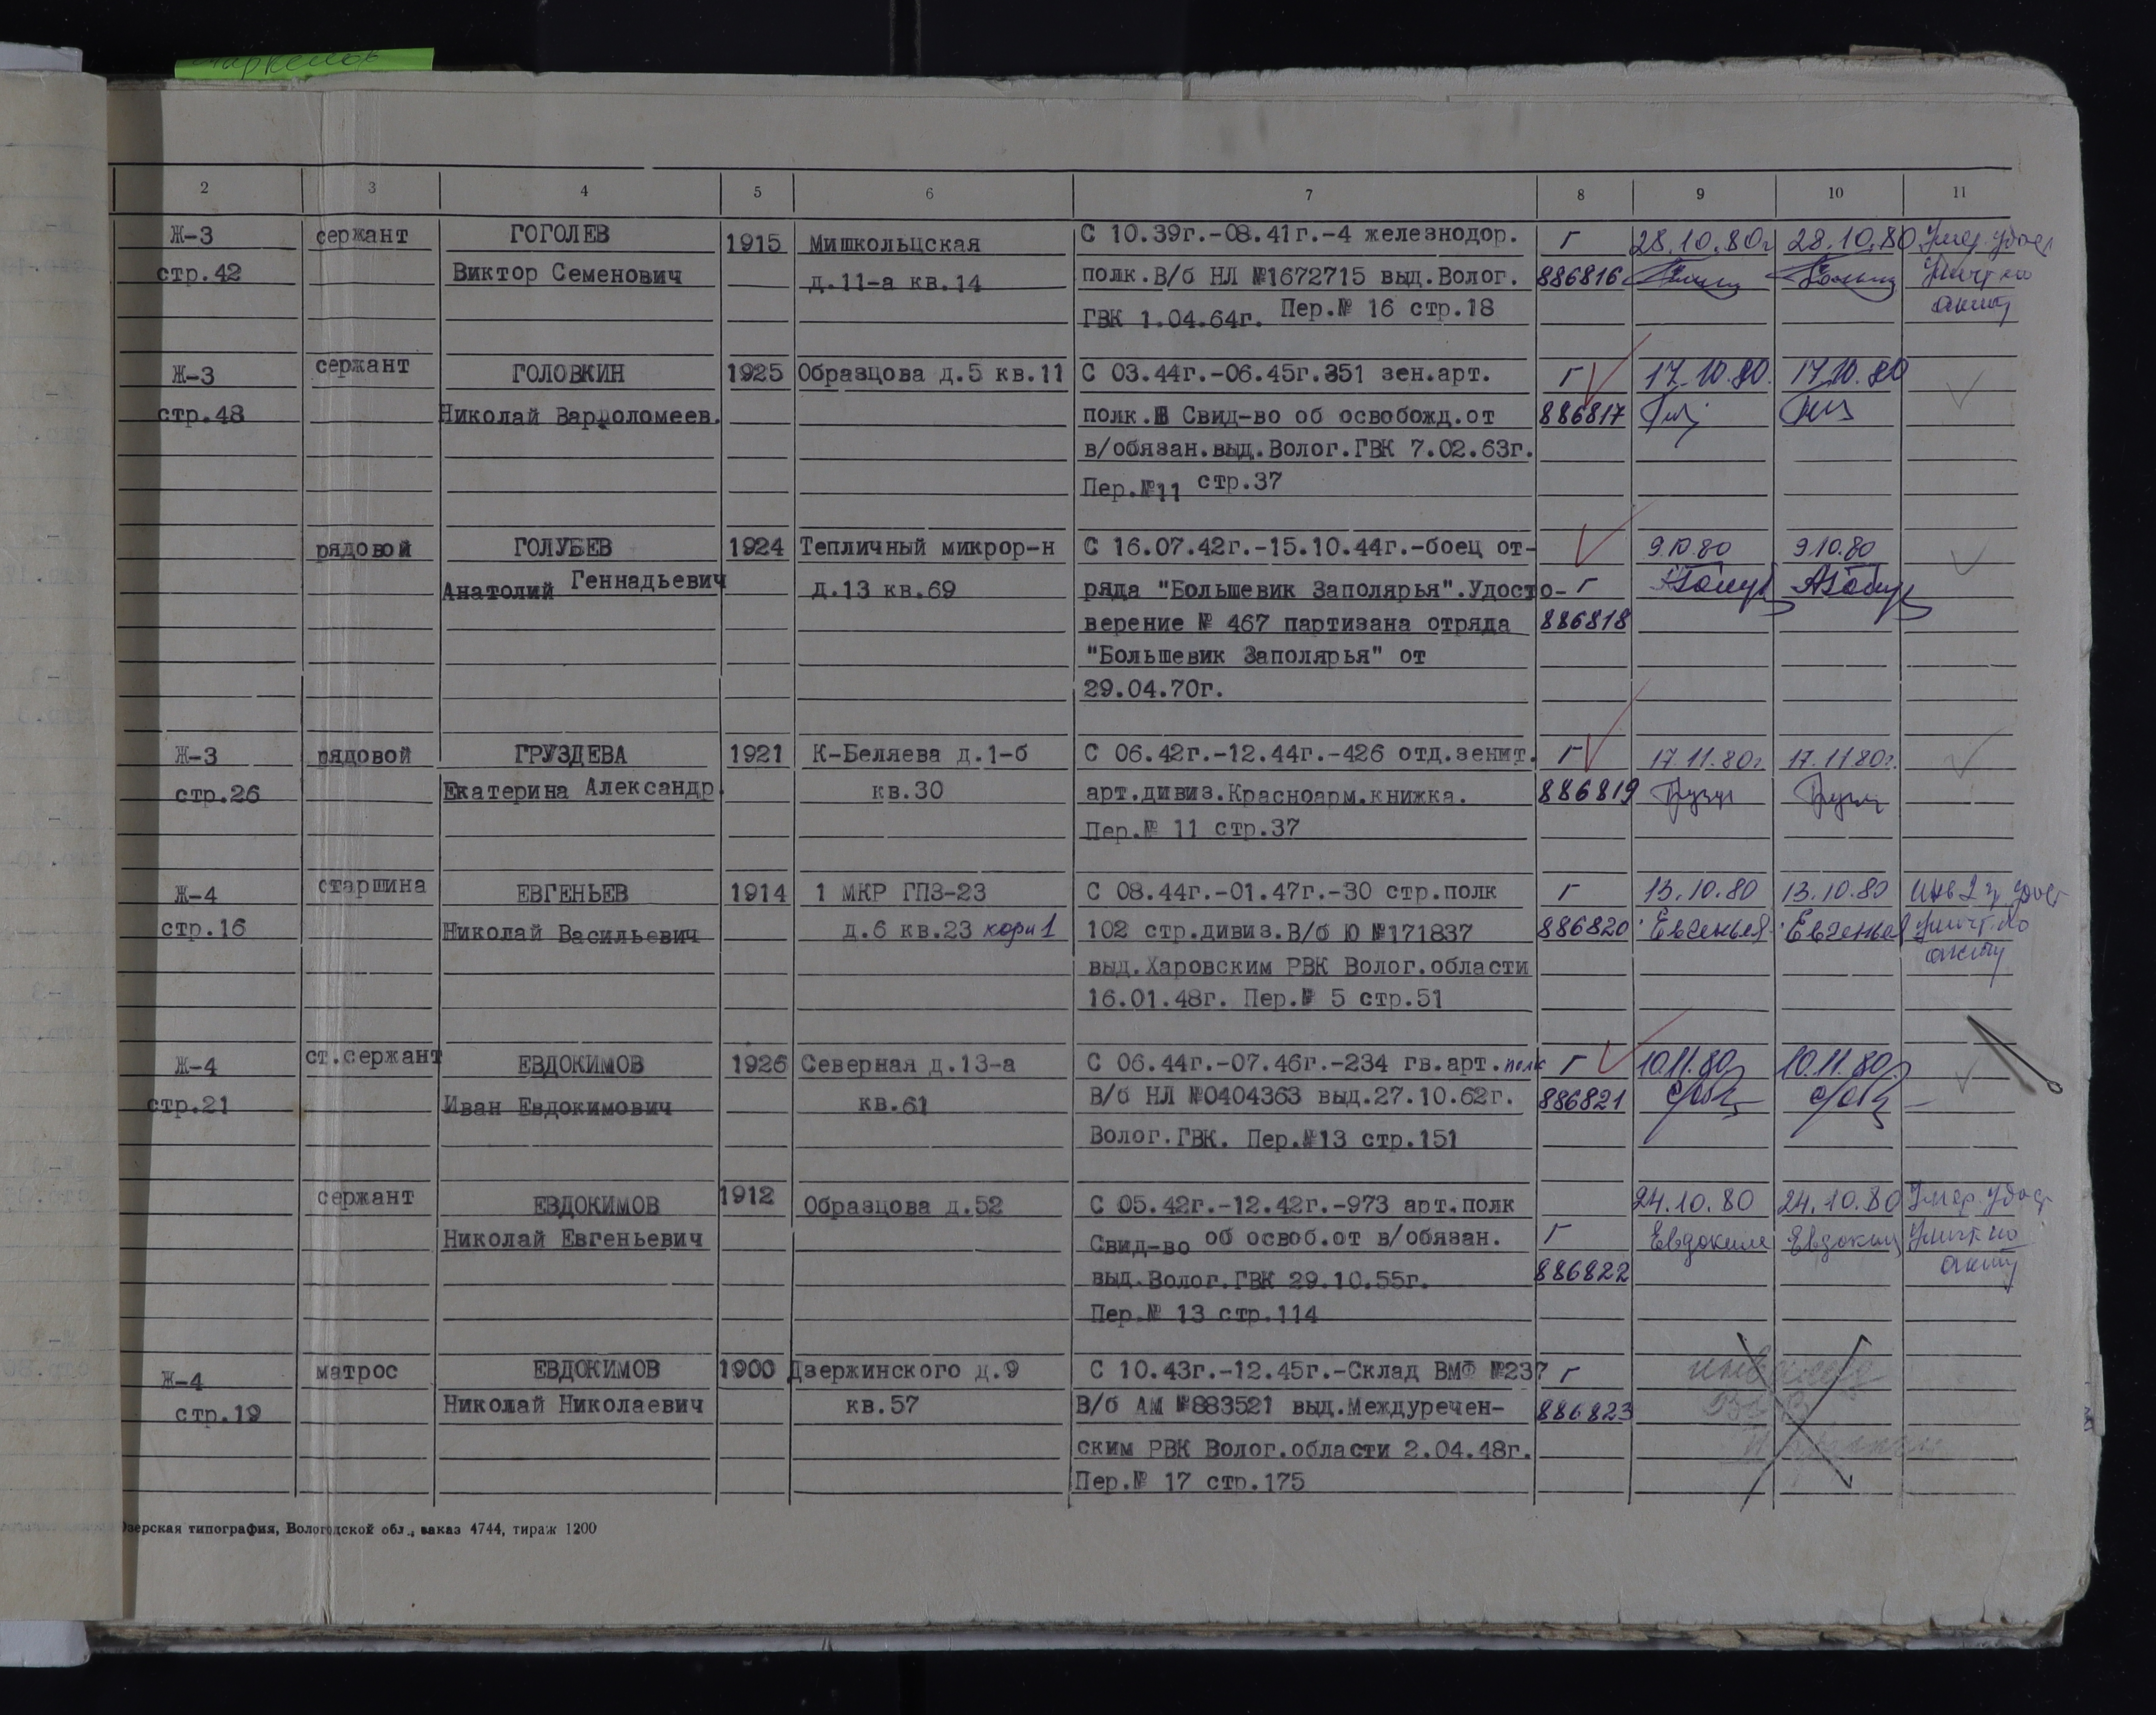 2 3 4 5 6 7 8 9 10 11
Ж-3 сержант ГОГОЛЕВ 1915 Мишкольцская С 10.39г.-08.41г.-4 железнодор. Г 28.10.80г 28.10.80 Умер. удост
стр.42 Виктор Семенович д.11-а кв.14 полк.В/б НЛ №1672715 выд.Волог. 886816 уничт по
ГВК 1.04.64г. Пер.№ 16 стр.18 акту
Ж-3 сержант ГОЛОВКИН 1925 Образцова д.5 кв.11 С 03.44г.-06.45г.351 зен.арт. Г 17.10.80. 17.10.80
стр.48 Николай Варфоломеев. полк. Свид-во об освобожд.от 886817
в/обязан.выд.Волог.ГВК 7.02.63г.
Пер.№11 стр.37
рядовой ГОЛУБЕВ 1924 Тепличный микрор-н С 16.07.42г.-15.10.44г.-боец от- 9.10.80 9.10.80
Анатолий Геннадьевич д.13 кв.69 ряда "Большевик Заполярья".Удосто- Г
верение № 467 партизана отряда 886818
"Большевик Заполярья" от
29.04.70г.
Ж-3 рядовой ГРУЗДЕВА 1921 К-Беляева д.1-б С 06.42г.-12.44г.-426 отд.зенит. Г 17.11.80г. 17.11.80г.
стр.26 Екатерина Александр. кв.30 арт.дивиз.Красноарм.книжка. 886819
Пер.№ 11 стр.37
Ж-4 старшина ЕВГЕНЬЕВ 1914 1 МКР ГПЗ-23 С 08.44г.-01.47г.-30 стр.полк Г 13.10.80 13.10.80 Инв 2 гр. удост
стр.16 Николай Васильевич д.6 кв.23 корп 1 102 стр.дивиз.В/б Ю №171837 886820 Евгеньев Евгеньев уничт. по
выд.Харовским РВК Волог.области акту
16.01.48г. Пер.№ 5 стр.51
Ж-4 ст.сержант ЕВДОКИМОВ 1926 Северная д.13-а С 06.44г.-07.46г.-234 гв.арт.полк Г 10.11.80. 10.11.80.
стр.21 Иван Евдокимович кв.61 В/б НЛ №0404363 выд.27.10.62г. 886821
Волог.ГВК. Пер.№13 стр.151
сержант ЕВДОКИМОВ 1912 Образцова д.52 С 05.42г.-12.42г.-973 арт.полк 24.10.80 24.10.80 Умер. удост
Николай Евгеньевич Свид-во об освоб.от в/обязан. Г Евдоким Евдоким уничт по
выд.Волог.ГВК 29.10.55г. 886822 акту
Пер.№ 13 стр.114
Ж-4 матрос ЕВДОКИМОВ 1900 Дзержинского д.9 С 10.43г.-12.45г.-Склад ВМФ №237 Г
стр.19 Николай Николаевич кв.57 В/б АМ №883521 выд.Междуречен- 886823
ским РВК Волог.области 2.04.48г.
Пер.№ 17 стр.175
типография, Вологодской обл., заказ 4744, тираж 1200